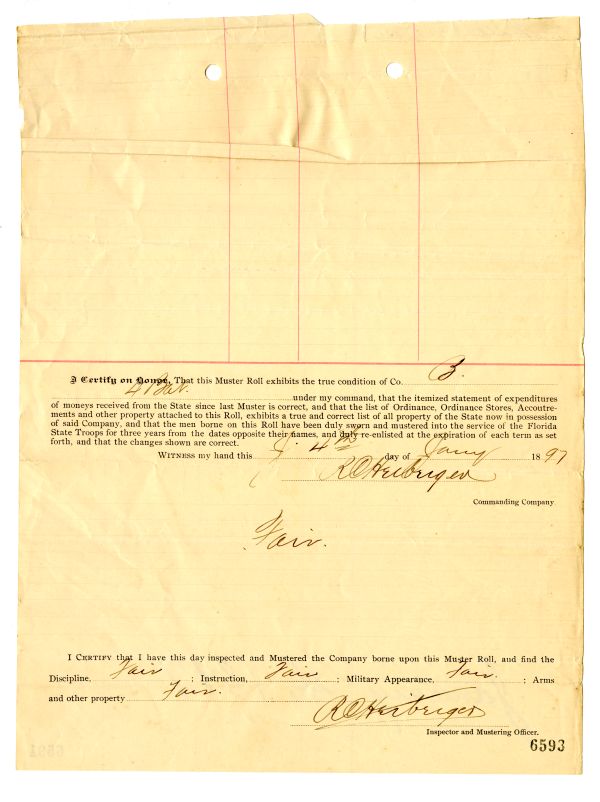 I Certify on Honor, That this Muster Roll exhibits the true condition of Co. B.
4 Bat. under my command, that the itemized statement of expenditures
of moneys received from the State since last Muster is correct, and that the list of Ordinance, Ordinance Stores, Accoutre-
ments and other property attached to this Roll, exhibits a true and correct list of all property of the State now in possession
of said Company, and that the men borne on this Roll have been duly sworn and mustered into the service of the Florida
State Troops for three years from the dates opposite their names, and duly re-enlisted at the expiration of each term as set
forth, and that the changes shown are correct.
WITNESS my hand this 4th day of Jany 1897
R C Heiberger
Commanding Company.
Fair.
I CERTIFY that I have this day inspected and Mustered the Company borne upon this Muster Roll, and find the
Discipline, Fair ; Instruction, Fair ; Military Appearance, Fair. ; Arms
and other property Fair.
R C Heiberger
Inspector and Mustering Officer.
6593